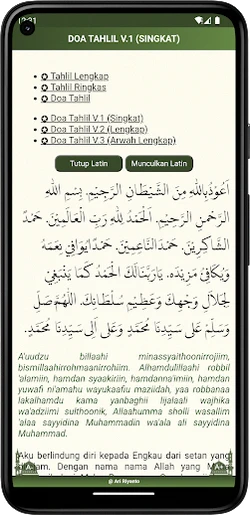 12:31
DOA TAHLIL V.1 (SINGKAT)
Tahlil Lengkap
Tahlil Ringkas
Doa Tahlil
Doa Tahlil V.1 (Singkat)
Doa Tahlil V.2 (Lengkap)
Doa Tahlil V.3 (Arwah Lengkap)
Tutup Latin Munculkan Latin
اَعُوْذُ بِاللهِ مِنَ الشَّيْطَانِ الرَّجِيْمِ. بِسْمِ اللهِ
الرَّحْمٰنِ الرَّحِيْمِ. اَلْحَمْدُ لِلّٰهِ رَبِّ الْعَالَمِيْنَ. حَمْدَ
الشَّاكِرِيْنَ. حَمْدَ النَّاعِمِيْنَ. حَمْدًا يُوَافِي نِعَمَهُ
وَيُكَافِئُ مَزِيْدَهُ. يَارَبَّنَالَكَ الْحَمْدُ كَمَا يَنْبَغِيْ
لِجَلَالِ وَجْهِكَ وَعَظِيْمِ سُلْطَانِكَ. اَللّٰهُمَّ صَلِّ
وَسَلِّمْ عَلَى سَيِّدِنَا مُحَمَّدٍ وَعَلَى اٰلِ سَيِّدِنَا مُحَمَّدٍ.
A'uudzu billaahi minassyaithoonirrojiim,
bismillaahirrohmaanirrohiim. Alhamdulillaahi robbil
'alamiin, hamdan syaakiriin, hamdanna'imiin, hamdan
yuwafi ni'amahu wayukaafiu maziidah, yaa robbanaa
lakalhamdu kama yanbaghii lijalaali wajhika
wa'adziimi sulthoonik, Allaahumma sholli wasallim
'alaa sayyidina Muhammadin wa'ala ali sayyidina
Muhammad.
Aku berlindung diri kepada Engkau dari setan yang
Dengan nama nama Allah yang
@ Ari Riyanto